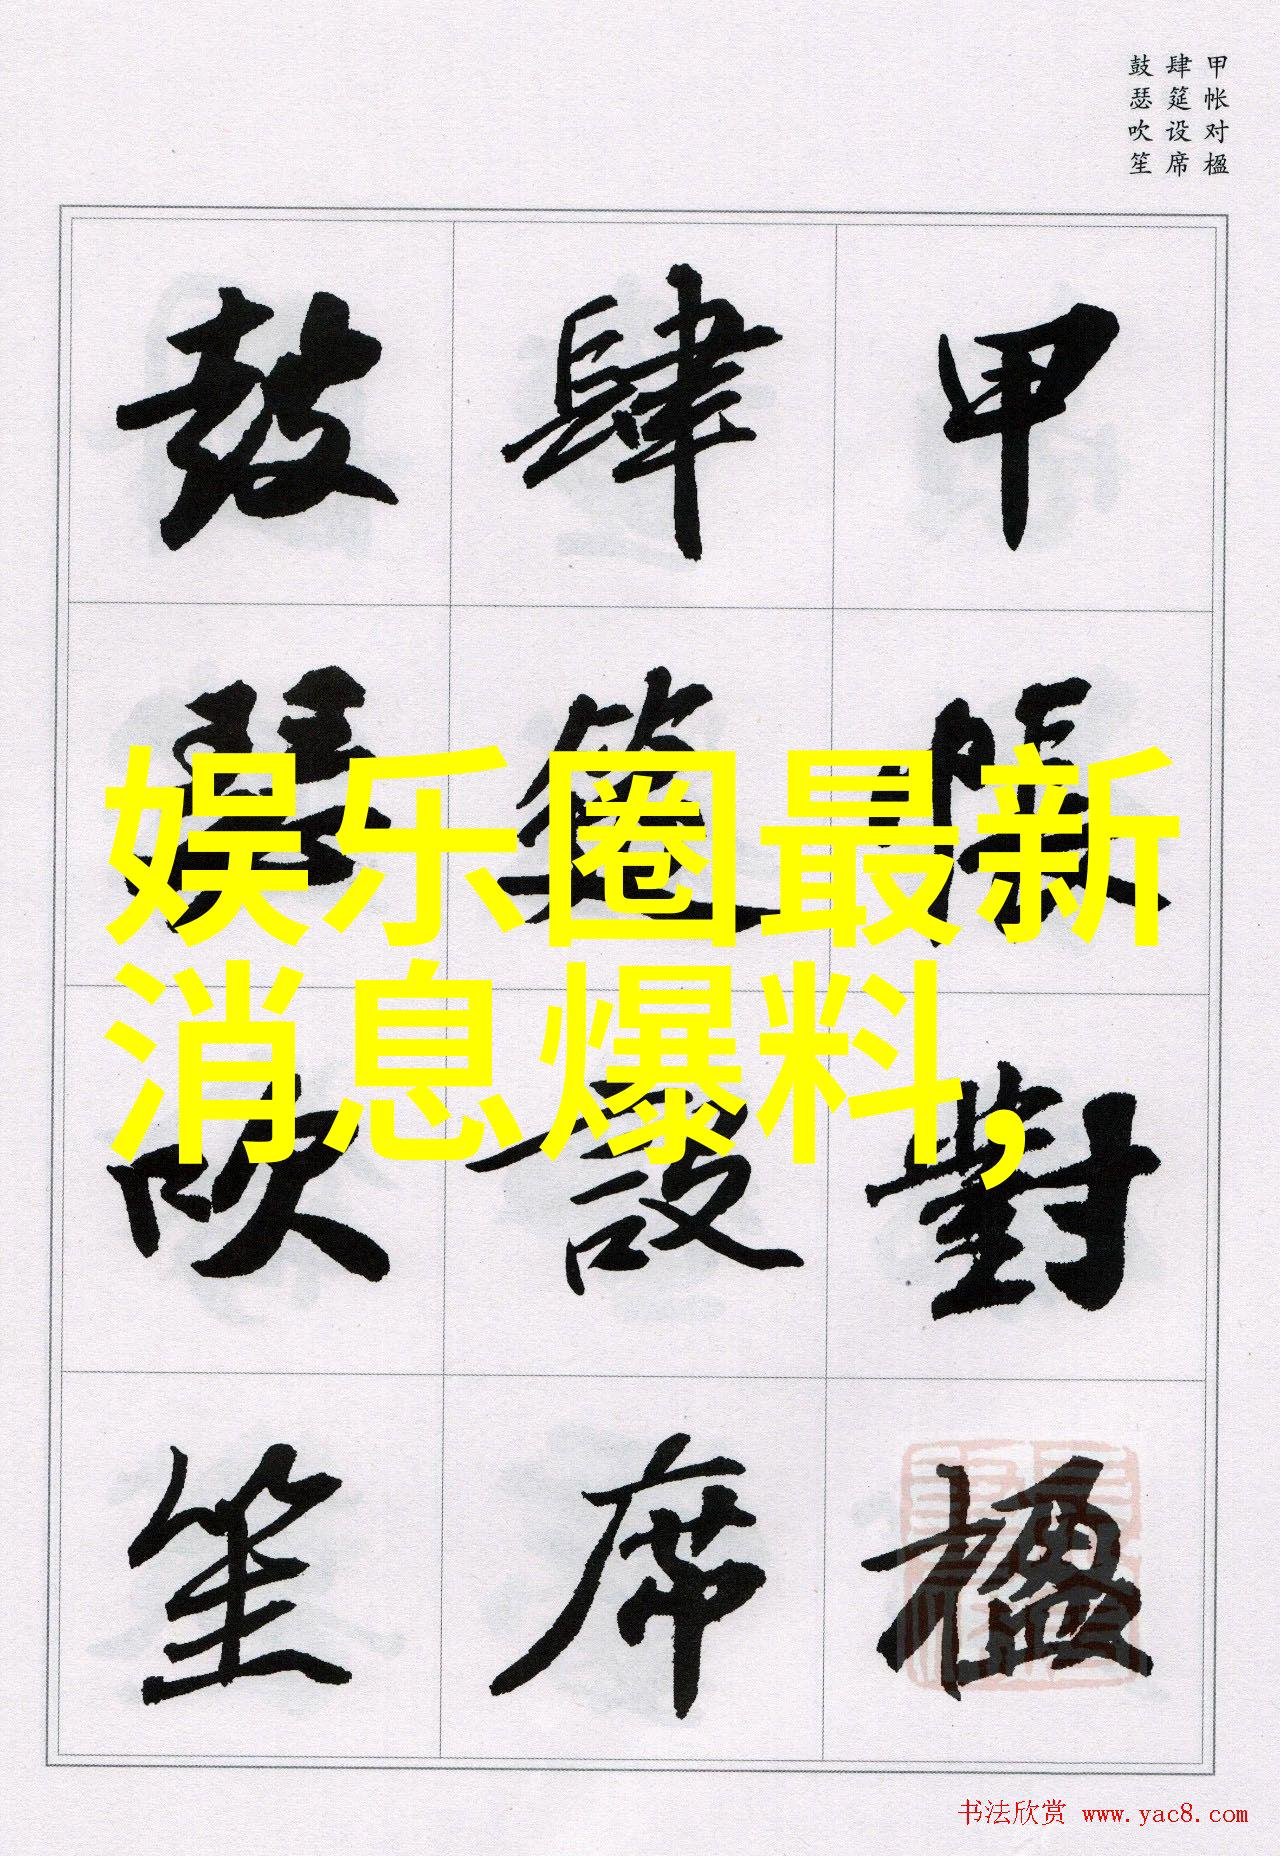 甲帐对楹
肆筵设席
鼓瑟吹笙
甲帳對楹
肆筵設席
鼓瑟吹笙
娱乐圈最新
消息爆料,
书法欣赏 www.yac8.com